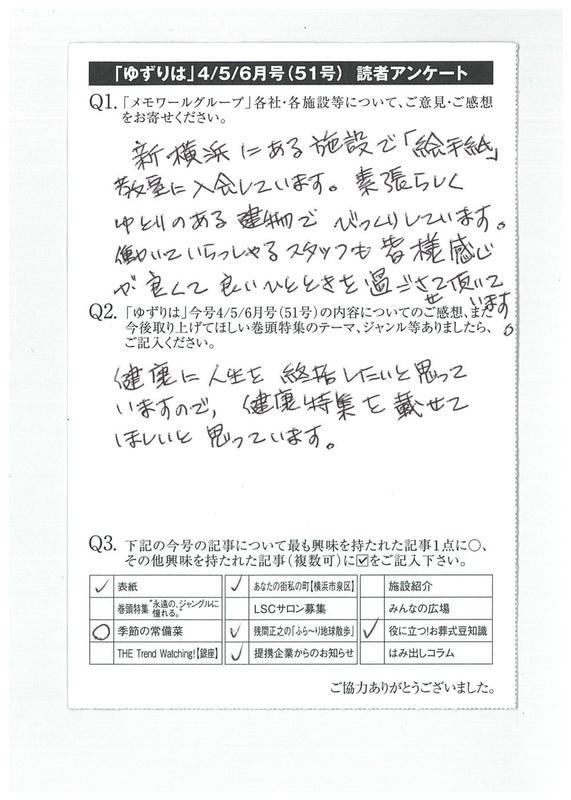 「ゆずりは」4/5/6月号（51号） 読者アンケート
Q1.「メモワールグループ」各社・各施設等について、ご意見・ご感想
をお寄せください。
新横浜にある施設で「絵手紙」
教室に入会しています。素張らしく
ゆとりのある建物で びっくりしています。
働いていらっしゃるスタッフも皆様感じ
が良くて良いひとときを過ごさせ頂いて
います。
Q2.「ゆずりは」今号4/5/6月号（51号）の内容についてのご感想、また
今後取り上げてほしい巻頭特集のテーマ、ジャンル等ありましたら、
ご記入ください。
健康に人生を 終活したいと思って
いますので、健康特集を載せて
ほしいと思っています。
Q3. 下記の今号の記事について最も興味を持たれた記事1点に○、
その他興味を持たれた記事（複数可）に☑をご記入下さい。
✓ 表紙 ✓ あなたの街私の町【横浜市泉区】 施設紹介
巻頭特集"永遠の、ジャングルに憧れる。" LSCサロン募集 みんなの広場
○ 季節の常備菜 ✓ 残間正之の「ふら〜り地球散歩」 ✓ 役に立つ!お葬式豆知識
THE Trend Watching!【銀座】 ✓ 提携企業からのお知らせ はみ出しコラム
ご協力ありがとうございました。